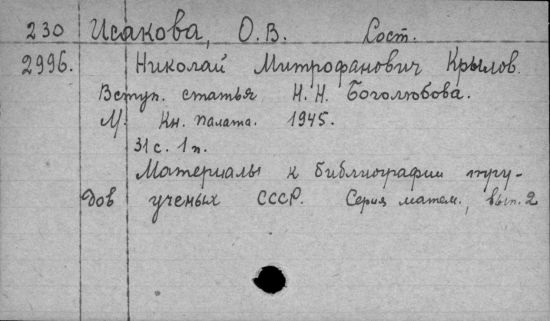 230 Исакова, О.В. Сост.
2996. Николай Митрофанович Крылов.
Вступ. статья Н.Н. Боголюбова.
М. Кн. палата. 1945.
31 с. 1 п.
Материалы к библиографии тру-
дов ученых СССР. Серия матем., вып. 2